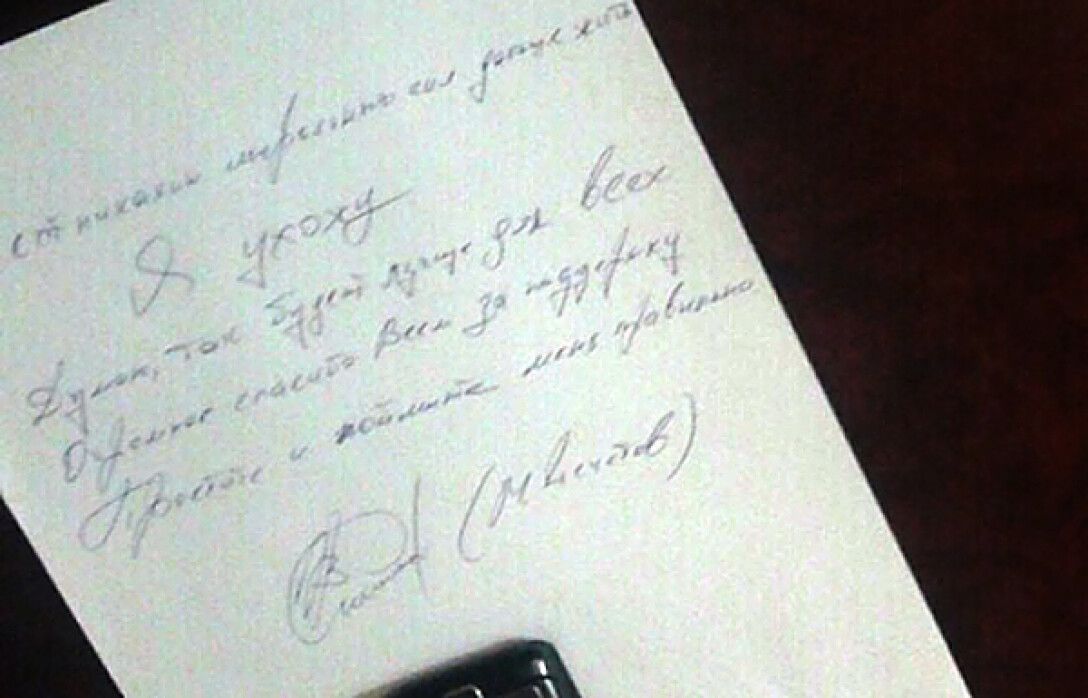 никаких моральных сил дальше жить
Я ухожу
Думаю, так будет лучше для всех
Огромное спасибо всем за поддержку
Простите и поймите меня правильно